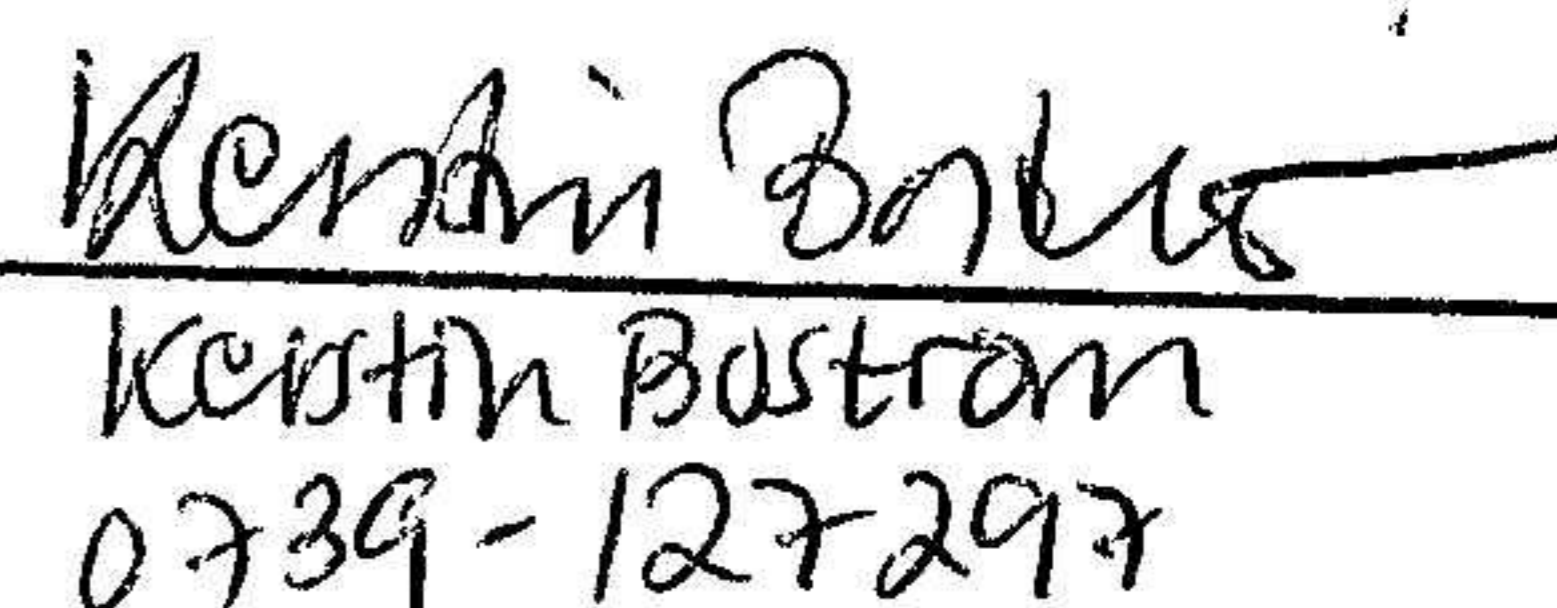 Kerstin Boström
Kerstin Boström
0739-127297